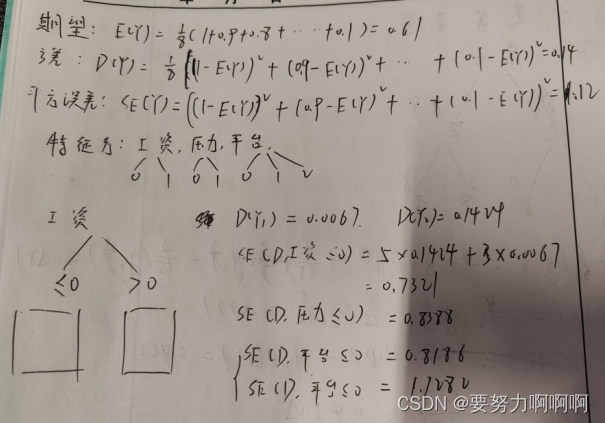 期望: E(Y) = 1/8(1+0.9+0.8+ ··· +0.1) = 0.61
方差: D(Y) = 1/8[(1-E(Y))² + (0.9-E(Y))² + ··· + (0.1-E(Y))² = 0.14
平方误差: SE(Y) = ((1-E(Y))² + (0.9-E(Y))² + ··· + (0.1-E(Y))² = 1.12
特征为: 工资, 压力, 平台.
0 1 0 1 0 1 2
工资
≤0 >0
D(Y₁) = 0.0067. D(Y₂) = 0.1424
SE(D,工资≤0) = 5×0.1424 + 3×0.0067
= 0.7321
SE(D,压力≤0) = 0.8388
SE(D,平台≤0 = 0.8186
SE(D,平台≤0 = 1.1282
CSDN @要努力啊啊啊